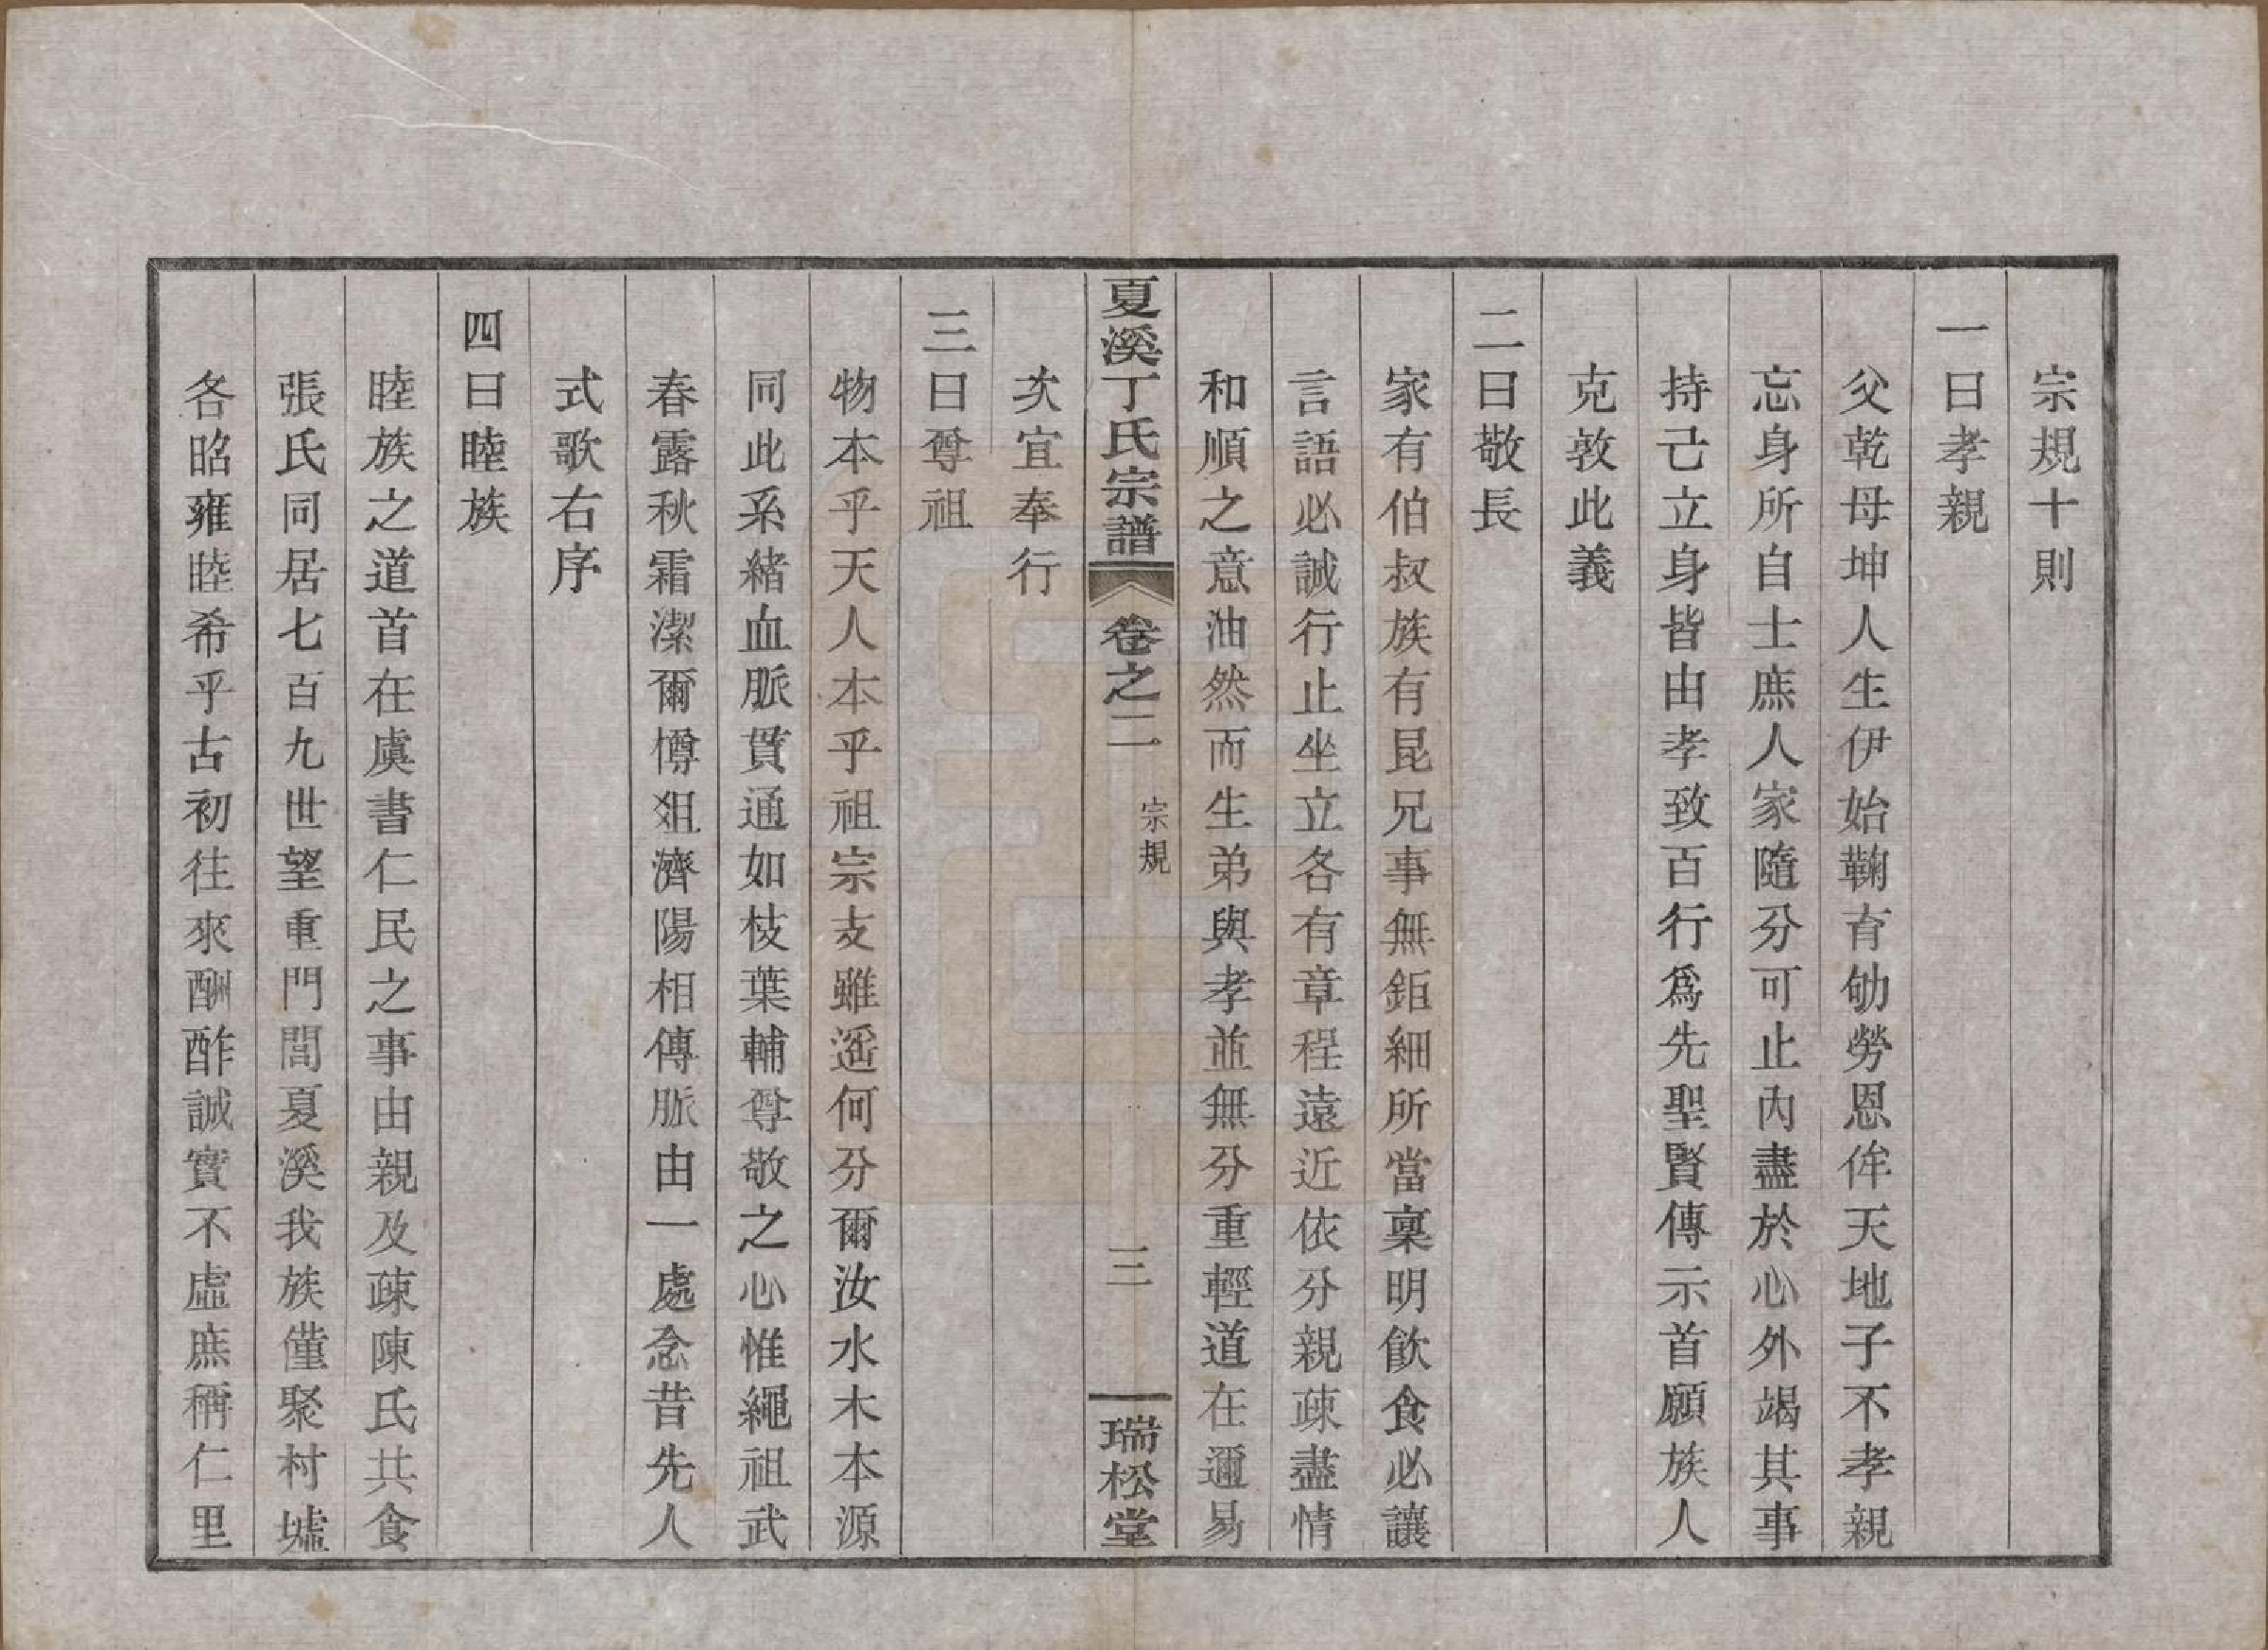 宗規十則
一曰孝親
父乾母坤人生伊始鞠育劬勞恩侔天地子不孝親
忘身所自士庶人家隨分可止內盡於心外竭其事
持己立身皆由孝致百行爲先聖賢傳示首願族人
克敦此義
二曰敬長
家有伯叔族有昆兄事無鉅細所當稟明飲食必讓
言語必誠行止坐立各有章程遠近依分親疎盡情
和順之意油然而生弟與孝並無分重輕道在邇易
夏溪丁氏宗譜 卷之二 宗規 三 瑞松堂
次宜奉行
三曰尊祖
物本乎天人本乎祖宗支雖遥何分爾汝水木本源
同此系緒血脈貫通如枝葉輔尊敬之心惟繩祖武
春露秋霜潔爾樽俎濟陽相傳脈由一處念昔先人
式歌右序
四曰睦族
睦族之道首在虞書仁民之事由親及疎陳氏共食
張氏同居七百九世望重門閭夏溪我族僅聚村墟
各昭雍睦希乎古初往來酬酢誠實不虛庶稱仁里